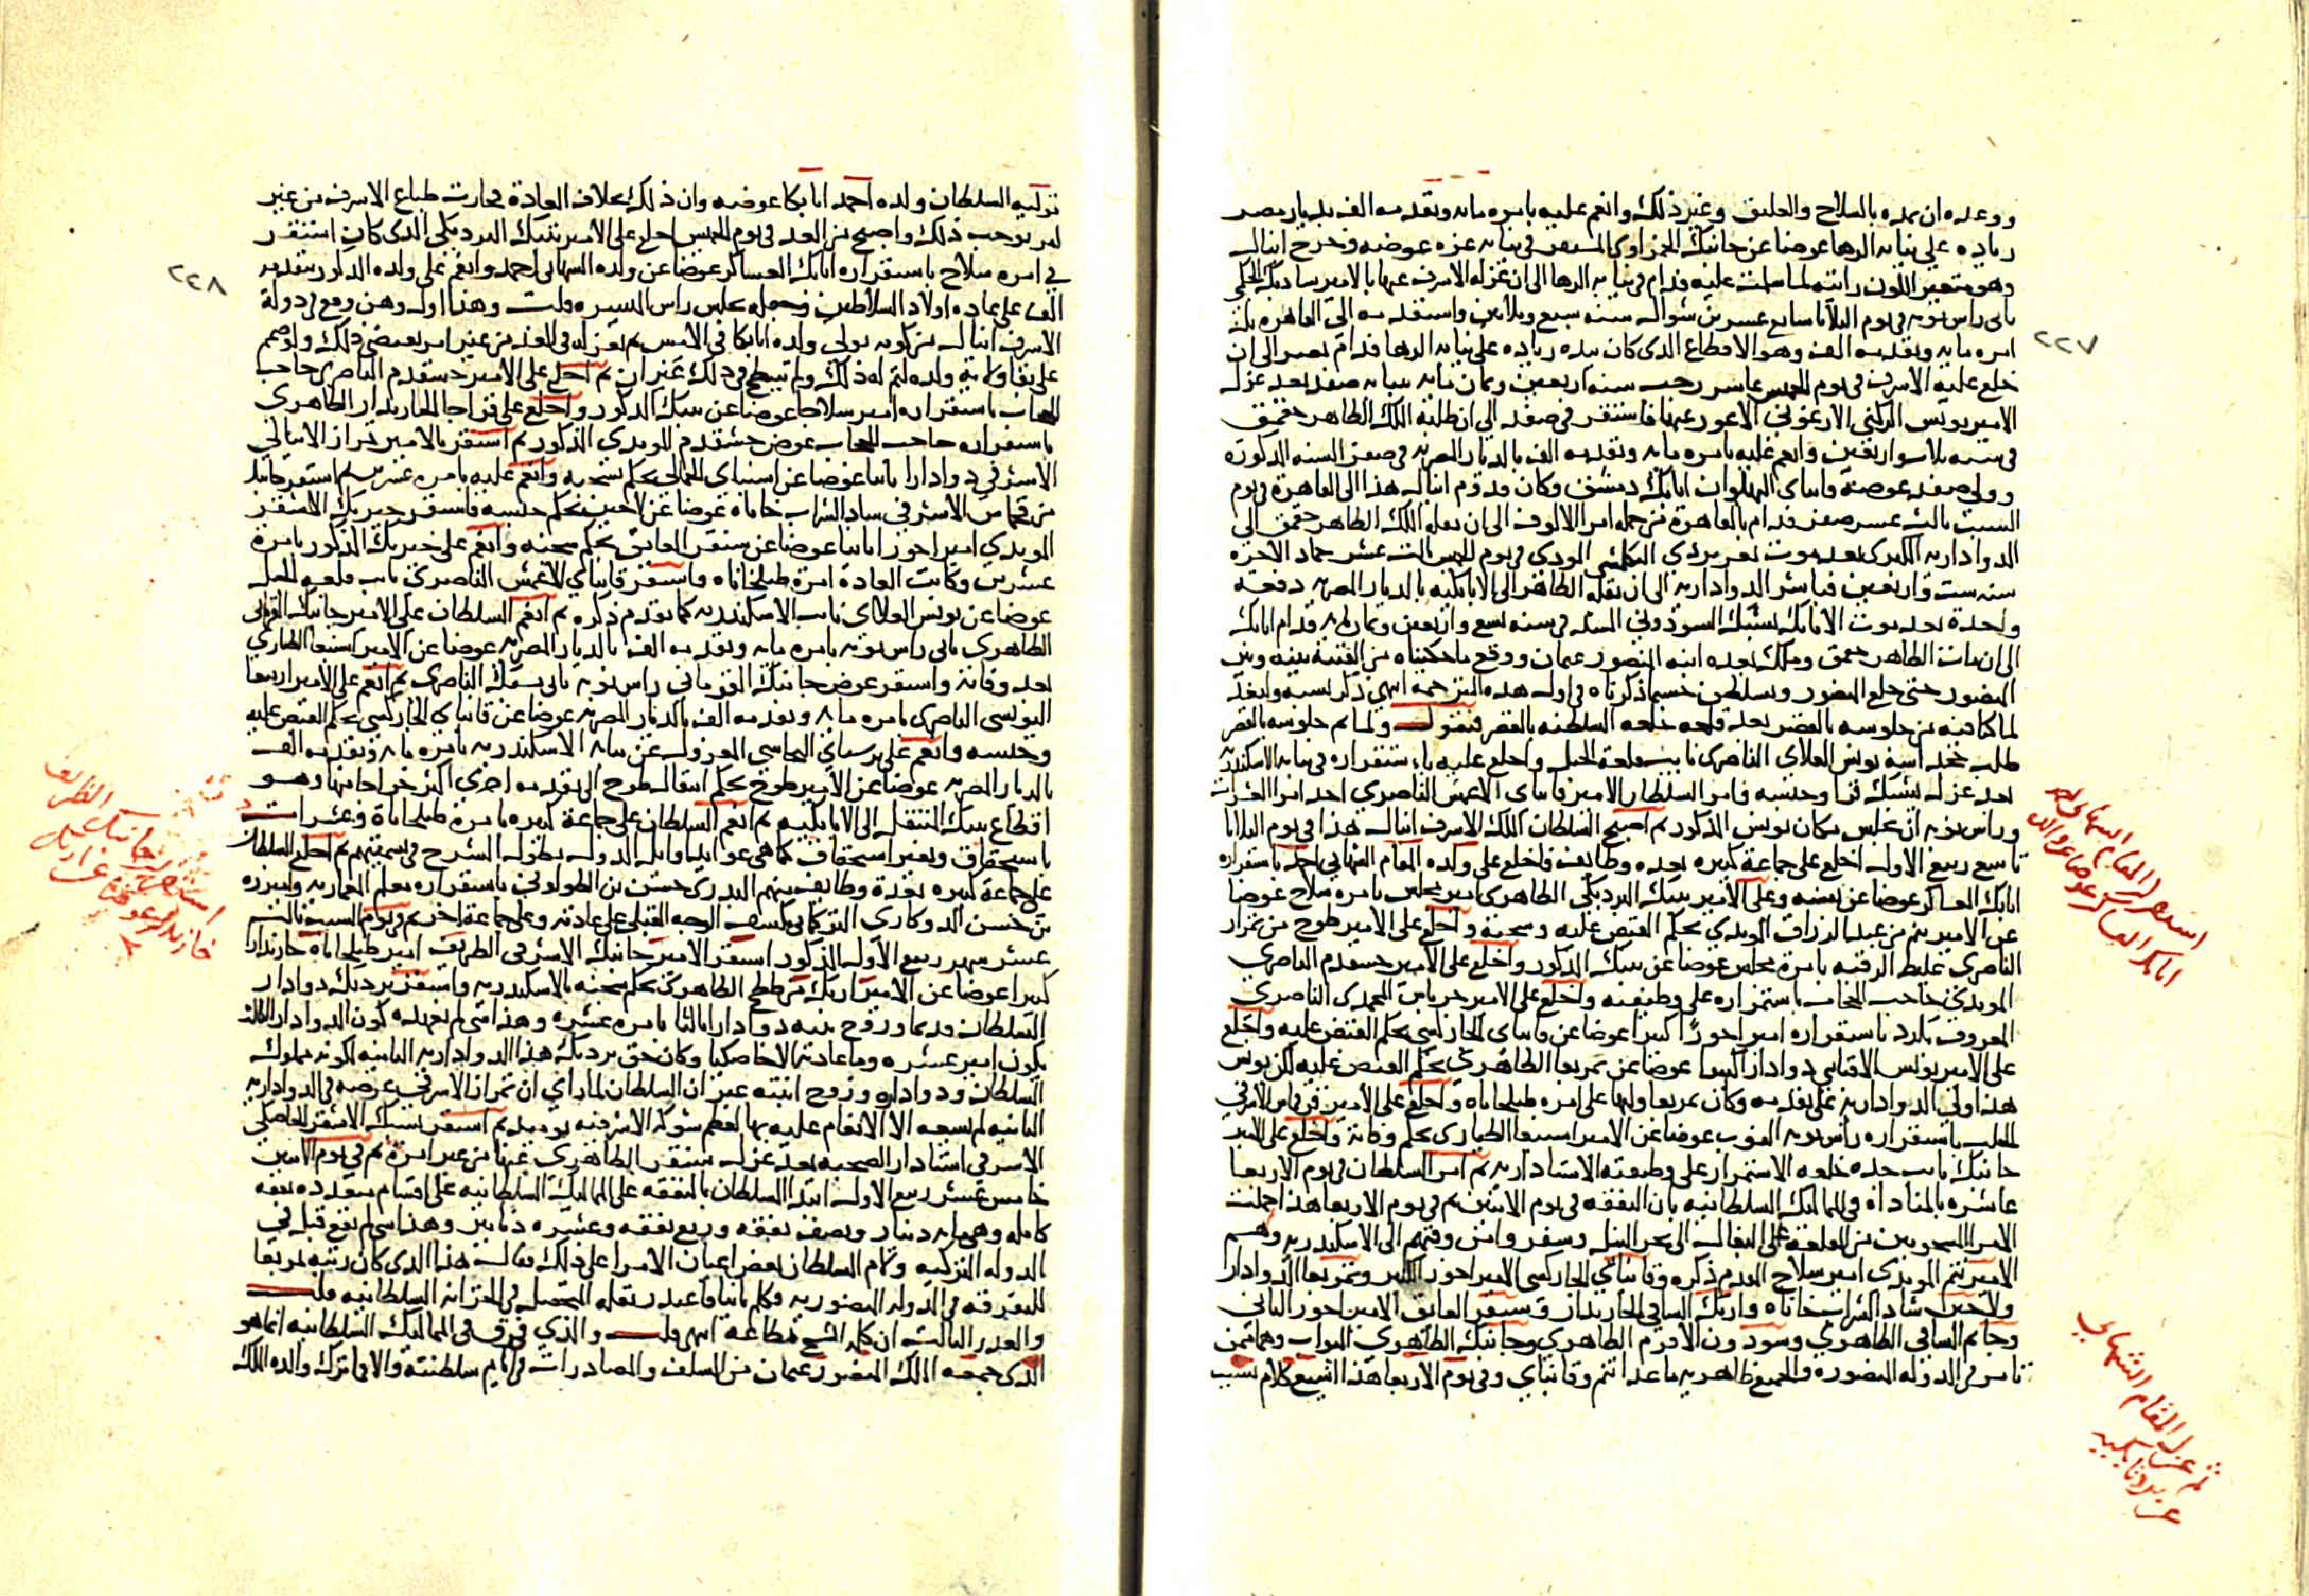 ووعده ان يمده بالسلاح والعليق وغير ذلك وانعم عليه بامره مايه وتقدمه الف بديار مصر
زياده على نيابه الرها عوضا عن جانبك الحمزاوى المستقر فى نيابه غزه عوضه وخرج اينال
وهو متغير اللون رايته لما سلمت عليه فدام فى نيابه الرها الى ان عزله الاشرف عنها بالامير شادبك الجكمى
ثانى راس نوبه فى يوم الثلاثا سابع عشرين شوال سنه سبع وثلاثين واستقدمه الى القاهره على
امره مايه وتقدمه الف وهو الاقطاع الذى كان بيده زياده على نيابه الرها فدام بمصر الى ان
خلع عليه الاشرف فى يوم الخميس عاشر رجب سنه اربعين وثمان مايه بنيابه صفد بعد عزل
الامير يونس الركنى الاعور عنها فاستقر فى صفد الى ان طلبه الملك الظاهر جقمق
فى سنه ثلاث واربعين وانعم عليه بامره مايه وتقدمه الف بالديار المصريه فى صفر السنه المذكوره
وولى صفد عوضه قانباى البهلوان اتابك دمشق وكان قدوم اينال هذا الى القاهرة فى يوم
السبت ثالث عشر صفر فدام بالقاهرة من جمله امرا الالوف الى ان نقله الملك الظاهر جقمق الى
الدواداريه الكبرى بعد موت تغرى بردى البكلمشى الموذى فى يوم الخميس ثالث عشر جماد الاخره
سنه ست واربعين فباشر الدواداريه الى ان نقله الظاهر الى الاتابكيه بالديار المصريه دفعه
واحدة بعد موت الاتابك يشبك السودونى المشد فى سنه تسع واربعين وثمان مايه فدام اتابك
الى ان مات الظاهر جقمق وملك بعده ابنه المنصور عثمان ووقع ما حكيناه من الفتنه بينه وبين
المنصور حتى خلع المنصور وتسلطن حسبما ذكرناه فى اول هذه الترجمه انتهى ذكر نسبه ولنعد
لما كنا فيه من جلوسه بالقصر بعد خلعه السلطنه بالقصر فنقول ولما تم جلوسه بالقصر
طلب خجداشه يونس العلاى الناصرى نايب قلعه الجبل واخلع عليه باستقراره فى نيابه الاسكندريه
بعد عزل برسباى وحبسه فامر السلطان الامير قانباى الاعمش الناصرى احد امرا العشرات
وراس نوبه ان يجلس مكان يونس المذكور ثم اصبح السلطان الملك الاشرف اينال هذا فى يوم الثلاثا
تاسع ربيع الاول اخلع على جماعه كثيره بعده وظايف فاخلع على ولده المقام الشهابى احمد باستقراره
اتابك العساكر عوضا عن نفسه وعلى الامير تنبك البردبكى الظاهرى امير مجلس بامره سلاح عوضا
عن الامير تنم من عبد الرزاق المويدى بحكم القبض عليه وسجنه واخلع على الامير طوخ من تمراز
الناصرى غليظ الرقبه بامرة مجلس عوضا عن تنبك المذكور واخلع على الامير خشقدم الناصرى
المويدى حاجب الحجاب باستمراره على وظيفته واخلع على الامير جرباش المحمدى الناصرى
المعروف بكرد باستقراره امير اخورا كبيرا عوضا عن قانباى الجاركسى بحكم القبض عليه واخلع
على الامير يونس الاقباى دوادارا كبيرا عوضا عن تمربغا الظاهرى بحكم القبض عليه لكن يونس
هذا ولى الدواداريه على تقدمه وكان تمربغا وليها على امره طبلخاناه واخلع على الامير قرقماس الاشرفى
الجلب باستقراره راس نوبه النوب عوضا عن الامير اسنبغا الطيارى بحكم وفاته واخلع على الامير
جانبك نايب جده خلعه الاستمرار على وظيفته الاستاداريه ثم امر السلطان فى يوم الاربعا
عاشره بالمناداه فى المماليك السلطانيه بان النفقه فى يوم الاثنين ثم فى يوم الاربعا هذا حملت
الامرا المسجونين من القلعه على البغال الى بحر النيل وسفر وامن وقتهم الى الاسكندريه وهم
الامير تنم المويدى امير سلاح المقدم ذكره وقانباى الجاركسى الامير اخور الكبير وتمربغا الدوادار
ولاجين شاد الشراب خاناه وازبك الساقى الخازندار وسنقر العايق الامير اخور الثانى
وجانم الساقى الظاهرى وسودون الافرم الظاهرى وجانبك الظاهرى البواب وهما ممن
تامر فى الدوله المنصوره والجميع ظاهريه ما عدا تنم وقانباى وفى يوم الاربعا هذا اشيع كلام بسبب
٢٢٧
استقرار المقام الشهابى احمد
اتابك العساكر عوضا عن والده
ثم عزل المقام الشهابى
عن
توليه السلطان ولده احمد اتابكا عوضه وان ذلك بخلاف العادة فحارت طباع الاشرف من غير
امر يوجب ذلك واصبح من الغد فى يوم الخميس اخلع على الامير تنبك البردبكى الذى كان استقر
فى امره سلاح باستقراره اتابك العساكر عوضا عن ولده الشهابى احمد وانعم على ولده المذكور بتقدمه
الف على عاده اولاد السلاطين وجعله يجلس راس الميسره قلت وهذا اول وهن وقع فى دولة
الاشرف اينال من كونه يولى ولده اتابكا فى الامس ثم يعزله فى الغد من غير امر يقتضى ذلك ولو صمم
على بقا ولايه ولده لتم له ذلك ولم ينتطح فى ذلك عنزان ثم اخلع على الامير خشقدم الناصرى حاجب
الحجاب باستقراره امير سلاح عوضا عن تنبك المذكور واخلع على قراجا الخازندار الظاهرى
باستقراره حاجب الحجاب عوض خشقدم المويدى المذكور ثم استقر بالامير تمراز الاينالى
الاشرفى دوادارا ثانيا عوضا عن اسنباى الجمالى بحكم سجنه وانعم عليه بامره عشره ثم استقر جانبك
من قجماس الاشرفى شاد الشراب خاناه عوضا عن لاجين بحكم حبسه واستقر خيربك الاشقر
المويدى امير اخورا ثانيا عوضا عن سنقر العايق بحكم سجنه وانعم على خيربك المذكور بامرة
عشرين وكانت العادة امرة طبلخاناه واستقر قانباى الاعمش الناصرى نايب قلعه الجبل
عوضا عن يونس العلاى نايب الاسكندريه كما تقدم ذكره ثم انعم السلطان على الامير جانبك القرمانى
الظاهرى ثانى راس نوبه بامره مايه وتقدمه الف بالديار المصريه عوضا عن الامير اسنبغا الطيارى
بعد وفاته واستقر عوض جانبك القرمانى راس نوبه ثانى يشبك الناصرى ثم انعم على الامير ارنبغا
اليونسى الناصرى بامره مايه وتقدمه الف بالديار المصريه عوضا عن قانباى الجاركسى بحكم القبض عليه
وحبسه وانعم على برسباى البجاسى المعزول عن نيابه الاسكندريه بامره مايه وتقدمه الف
بالديار المصريه عوضا عن الامير طوخ بحكم انتقال طوخ الى تقدمه اخرى اكثر خراجا منها وهو
اقطاع تنبك المنتقل الى الاتابكيه ثم انعم السلطان على جماعة كثيره بامرة طبلخاناة وعشرات
باستحقاق وبغير استحقاق كما هى عوايد اوايل الدول يطول الشرح فى تسميتهم ثم اخلع السلطان
على جماعة كثيره بعدة وظايف منهم البدرى حسن بن الطولونى باستقراره معلم المعماريه
بن حسن الدوكارى التركمانى كشف الوجه القبلى على عادته وعلى جماعة اخر وفى يوم السبت ثالث
عشر شهر ربيع الاول المذكور استقر الامير جانبك الاشرفى الظريف امير طبلخاناه خازندارا
كبيرا عوضا عن الامير ازبك من ططخ الظاهرى بحكم سجنه بالاسكندريه واستقر بردبك دوادار
السلطان قديما وزوج بنته دوادارا ثالثا بامره عشره وهذا شى لم نعهده كون الدوادار الثالث
يكون امير عشره وما عادته الا خاصكيا وكان حق بردبك هذا الدواداريه الثانيه لكونه مملوك
السلطان ودواداره وزوج ابنته غير ان السلطان لما راى ان تمراز الاشرفى غرضه فى الدواداريه
الثانيه لم يسعه الا الانعام عليه بها لعظم شوكه الاشرفيه يوميذ ثم استقر يشبك الاشقر الخاصكى
الاشرفى استادار الصحبه بعد عزل سنقر الظاهرى عنها من غير امرة ثم فى يوم الاثنين
خامس عشر ربيع الاول ابتدا السلطان بالنفقه على المماليك السلطانيه على اقسام متعدده نفقه
كامله وهى مايه دينار ونصف نفقه وربع نفقه وعشره دنانير وهذا شى لم يقع قبل فى
الدوله التركيه وكلم السلطان بعض اعيان الامرا على ذلك فقال هذا الذى كان رتبه تمربغا
للتفرقه فى الدوله المنصوريه المتحصل فى الخزانه السلطانيه قلت
والعذر الثالث ان كله الشح مطاعه انتهى قلت والذى فرق فى المماليك السلطانيه انما هو
الذى جمعه الملك المنصور عثمان من السلف والمصادرات فى ايام سلطنته والا فما ترك والده الملك
٢٢٨
استقرار جانبك الظريف
خازندار عوضا عن ازبك